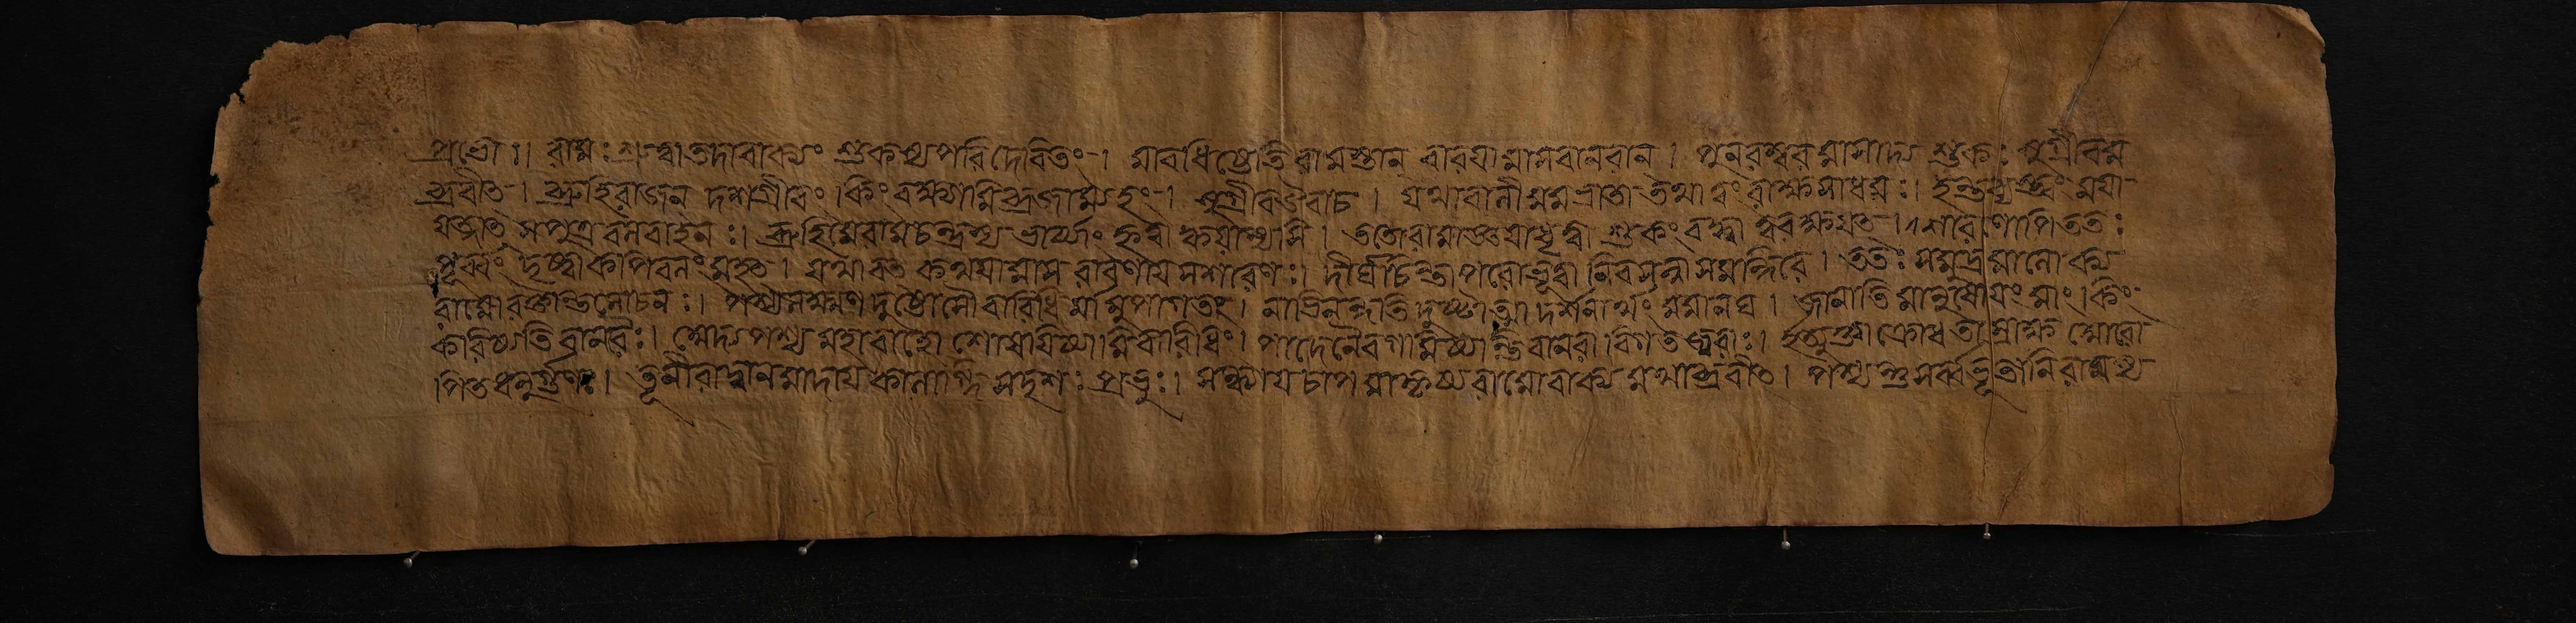 প্রভো ঃ। রামঃ শ্রুত্বা তদাবাক্যং শুকস্য পরিদেবিতং । মাবধিষ্টেতি রামস্তান্ বারয়ামাসবানরান্ । পুনরম্বরমাসাদ্য শুকঃ সুগ্রীবম
ব্রবীৎ । ব্রুহিরাজন্ দশগ্রীবং কিং বক্ষ্যামি ব্রজাম্যহং । সুগ্রীবউবাচ । যথাবালী মমভ্রাতা তথা ত্বং রাক্ষসাধমঃ। হন্তব্যস্ত্বং ময়া
যত্নাৎ সপুত্র বলবাহনঃ। ব্রুহিমেরামচন্দ্রস্য ভার্য্যাং হৃত্বা ক্বযাস্যসি । ততোরামাজ্ঞয়াধৃত্বা শুকং বদ্ধ্বা ত্বরক্ষয়ৎ । শারণোপিততঃ
পূর্ব্বং দৃষ্ট্বা কপিবলং মহৎ । যথাবৎ কথয়ামাস রাবণায় সশারণঃ। দীর্ঘচিন্তাপরোভূত্বা নিবসন্না সমন্দিরে । ততঃ সমুদ্রমালোক্য
রামোরক্তান্তলোচনঃ। পশ্যলক্ষ্মণ দুষ্টোসৌ বারিধি র্মামুপাগতং । নাভিনন্দতি দুষ্টাত্মা দর্শনার্থং মমানঘ । জানাতি মানুষোয়ং মাং কিং
করিষ্যতি বানরৈঃ। অদ্য পশ্য মহাবাহো শোষয়িষ্যামি বারিধিং। পাদেনৈবগমিষ্যন্তি বানরা বিগতজ্বরাঃ। ইত্যুক্ত্বা ক্রোধতাম্রাক্ষ আরো
পিতধনুর্গুণঃ। তূণীরাদ্বানমাদায় কালাগ্নি সদৃশঃ প্রভুঃ। সন্ধায় চাপমাকৃষ্যরামোবাক্য মথাব্রবীৎ । পশ্যন্তু সর্ব্বভূতানি রামস্য